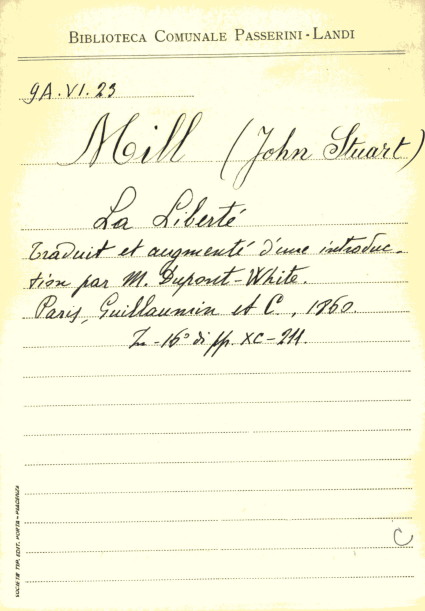 BIBLIOTECA COMUNALE PASSERINI-LANDI
9A.VI.23
Mill (John Stuart)
La Liberté
Traduit et augmenté d'une introduc-
tion par M. Dupont-White.
Paris, Guillaumin et C., 1860.
In-16° di pp. XC-211.
C
SOCIETÀ TIP. EDIT. PORTA - PIACENZA